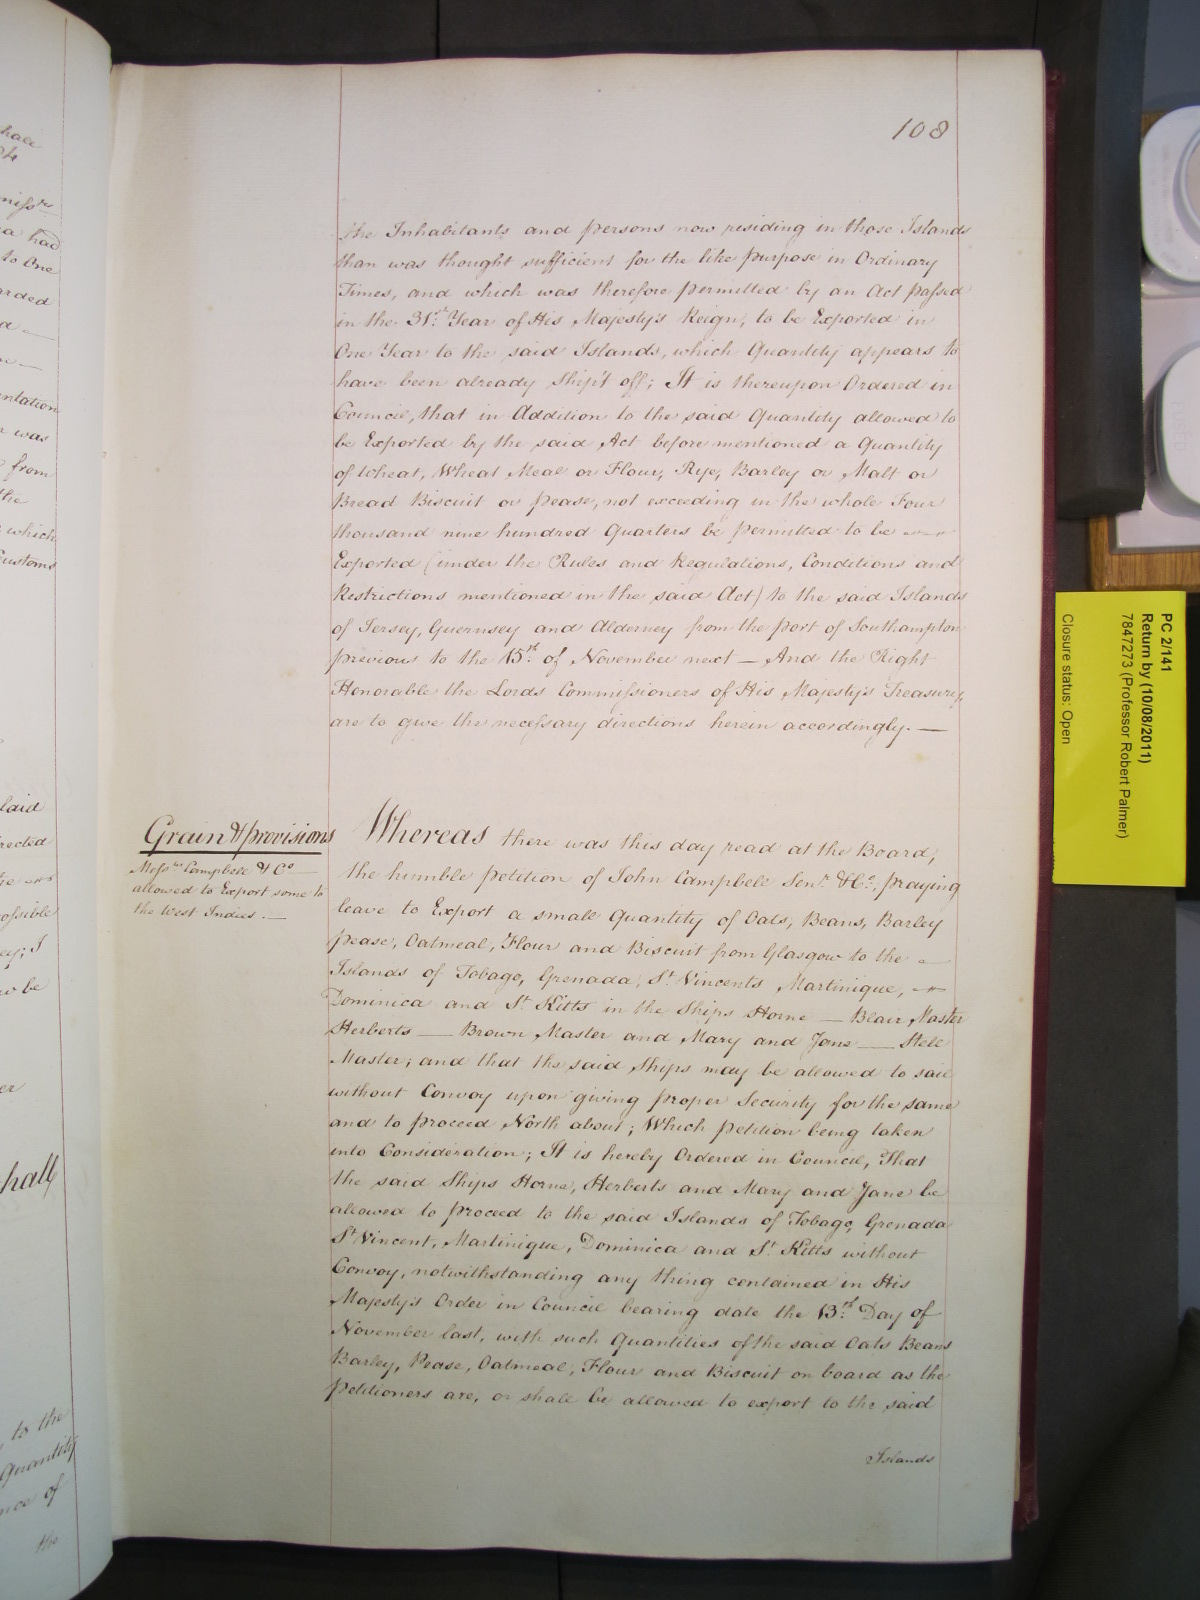 108
the Inhabitants and persons now residing in those Islands
than was thought sufficient for the like purpose in Ordinary
Times, and which was therefore permitted by an Act passed
in the 31st. Year of His Majesty's Reign, to be Exported in
One Year to the said Islands, which Quantity appears to
have been already Ship't off; It is thereupon Ordered in
Council, that in Addition to the said Quantity allowed to
be Exported by the said Act before mentioned a Quantity
of Wheat, Wheat Meal or Flour, Rye, Barley or Malt or
Bread Biscuit or pease, not exceeding in the whole Four
thousand nine hundred Quarters be permitted to be
Exported (under the Rules and Regulations, Conditions and
Restrictions mentioned in the said Act) to the said Islands
of Jersey, Guernsey and Alderney from the port of Southampton
previous to the 15th. of November next — And the Right
Honorable the Lords Commissioners of His Majesty's Treasury,
are to give the necessary directions herein accordingly. —
Grain & provisions
Messrs. Campbell & Co.
allowed to Export some to
the West Indies. —
Whereas there was this day read at the Board,
the humble petition of John Campbell Senr. & Co., praying
leave to Export a small Quantity of Oats, Beans, Barley
pease, Oatmeal, Flour and Biscuit from Glasgow to the
Islands of Tobago, Grenada, St. Vincents Martinique,
Dominica and St. Kitts in the Ships Horne — Blair Master
Herberts — Brown Master and Mary and Jane — Stele
Master; and that the said Ships may be allowed to sail
without Convoy upon giving proper Security for the same
and to proceed North about; Which petition being taken
into Consideration; It is hereby Ordered in Council, That
the said Ships Horne, Herberts and Mary and Jane be
allowed to proceed to the said Islands of Tobago, Grenada
St. Vincent, Martinique, Dominica and St. Kitts without
Convoy, notwithstanding any thing contained in His
Majesty's Order in Council bearing date the 13th. Day of
November last, with such Quantities of the said Oats Beans
Barley, Pease, Oatmeal, Flour and Biscuit on board as the
Petitioners are, or shall be allowed to export to the said
Islands
PC 2/141
Return by (10/08/2011)
7847273 (Professor Robert Palmer)
Closure status: Open